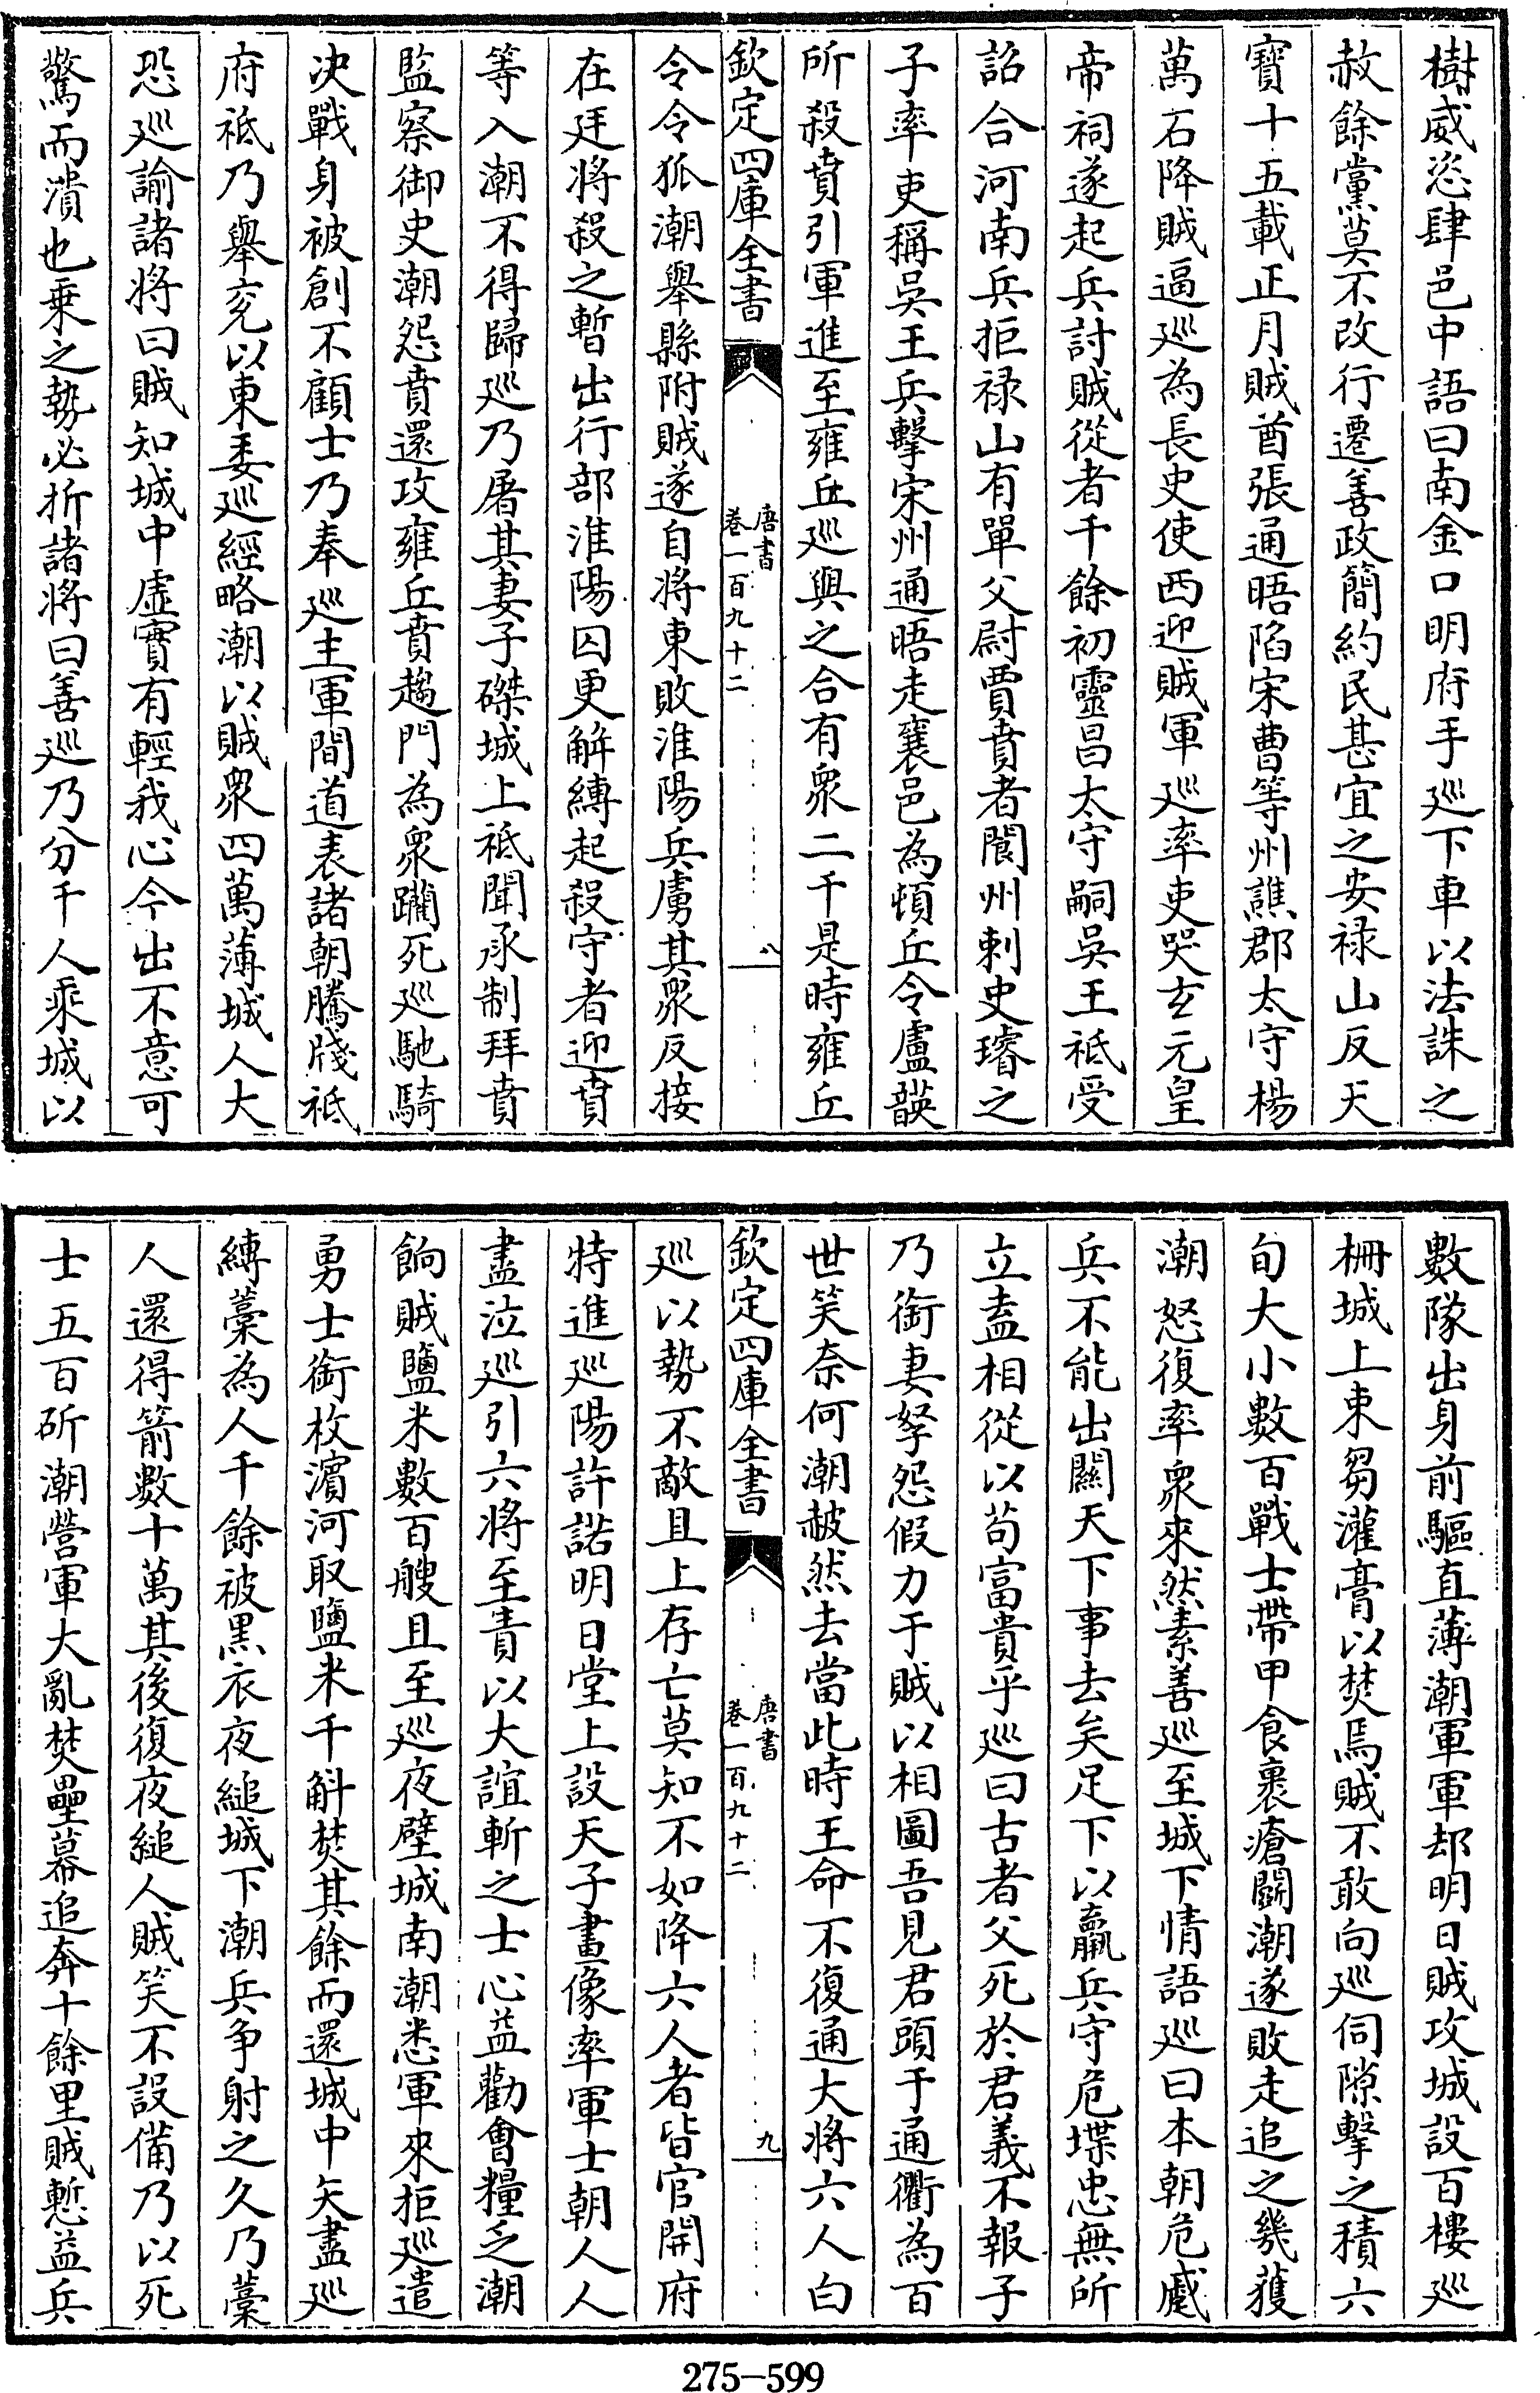 樹威恣肆邑中語曰南金口明府手巡下車以法誅之
赦餘黨莫不改行遷善政簡約民甚宜之安禄山反天
寶十五載正月賊酋張通晤陷宋曹等州譙郡太守楊
萬石降賊逼巡為長史使西迎賊軍巡率吏哭玄元皇
帝祠遂起兵討賊從者千餘初靈昌太守嗣吳王祗受
詔合河南兵拒禄山有單父尉賈賁者閬州刺史璿之
子率吏稱吳王兵擊宋州通晤走襄邑為頓丘令盧韺
所殺賁引軍進至雍丘巡與之合有衆二千是時雍丘
欽定四庫全書 唐書 卷一百九十二 八
令令狐潮舉縣附賊遂自將東敗淮陽兵虜其衆反接
在廷將殺之暫出行部淮陽囚更解縛起殺守者迎賁
等入潮不得歸巡乃屠其妻子磔城上祗聞承制拜賁
監察御史潮怨賁還攻雍丘賁趨門為衆躪死巡馳騎
决戰身被創不顧士乃奉巡主軍間道表諸朝騰牋祗
府祗乃舉兖以東委巡經略潮以賊衆四萬薄城人大
恐巡諭諸將曰賊知城中虚實有輕我心今出不意可
驚而潰也乗之勢必折諸將曰善巡乃分千人乘城以
數隊出身前驅直薄潮軍軍却明日賊攻城設百樓巡
柵城上束芻灌膏以焚焉賊不敢向巡伺隙擊之積六
旬大小數百戰士帶甲食裹瘡鬭潮遂敗走追之幾獲
潮怒復率衆來然素善巡至城下情語巡曰本朝危蹙
兵不能出關天下事去矣足下以羸兵守危堞忠無所
立盍相從以苟富貴乎巡曰古者父死於君義不報子
乃銜妻孥怨假力于賊以相圖吾見君頭于通衢為百
世笑奈何潮赧然去當此時王命不復通大將六人白
欽定四庫全書 唐書 卷一百九十二 九
巡以勢不敵且上存亡莫知不如降六人者皆官開府
特進巡陽許諾明日堂上設天子畫像率軍士朝人人
盡泣巡引六將至責以大誼斬之士心益勸會糧乏潮
餉賊鹽米數百艘且至巡夜壁城南潮悉軍來拒巡遣
勇士銜枚濵河取鹽米千斛焚其餘而還城中矢盡巡
縛藁為人千餘被黑衣夜縋城下潮兵争射之久乃藁
人還得箭數十萬其後復夜縋人賊笑不設備乃以死
士五百斫潮營軍大亂焚壘幕追奔十餘里賊慙益兵
275-599